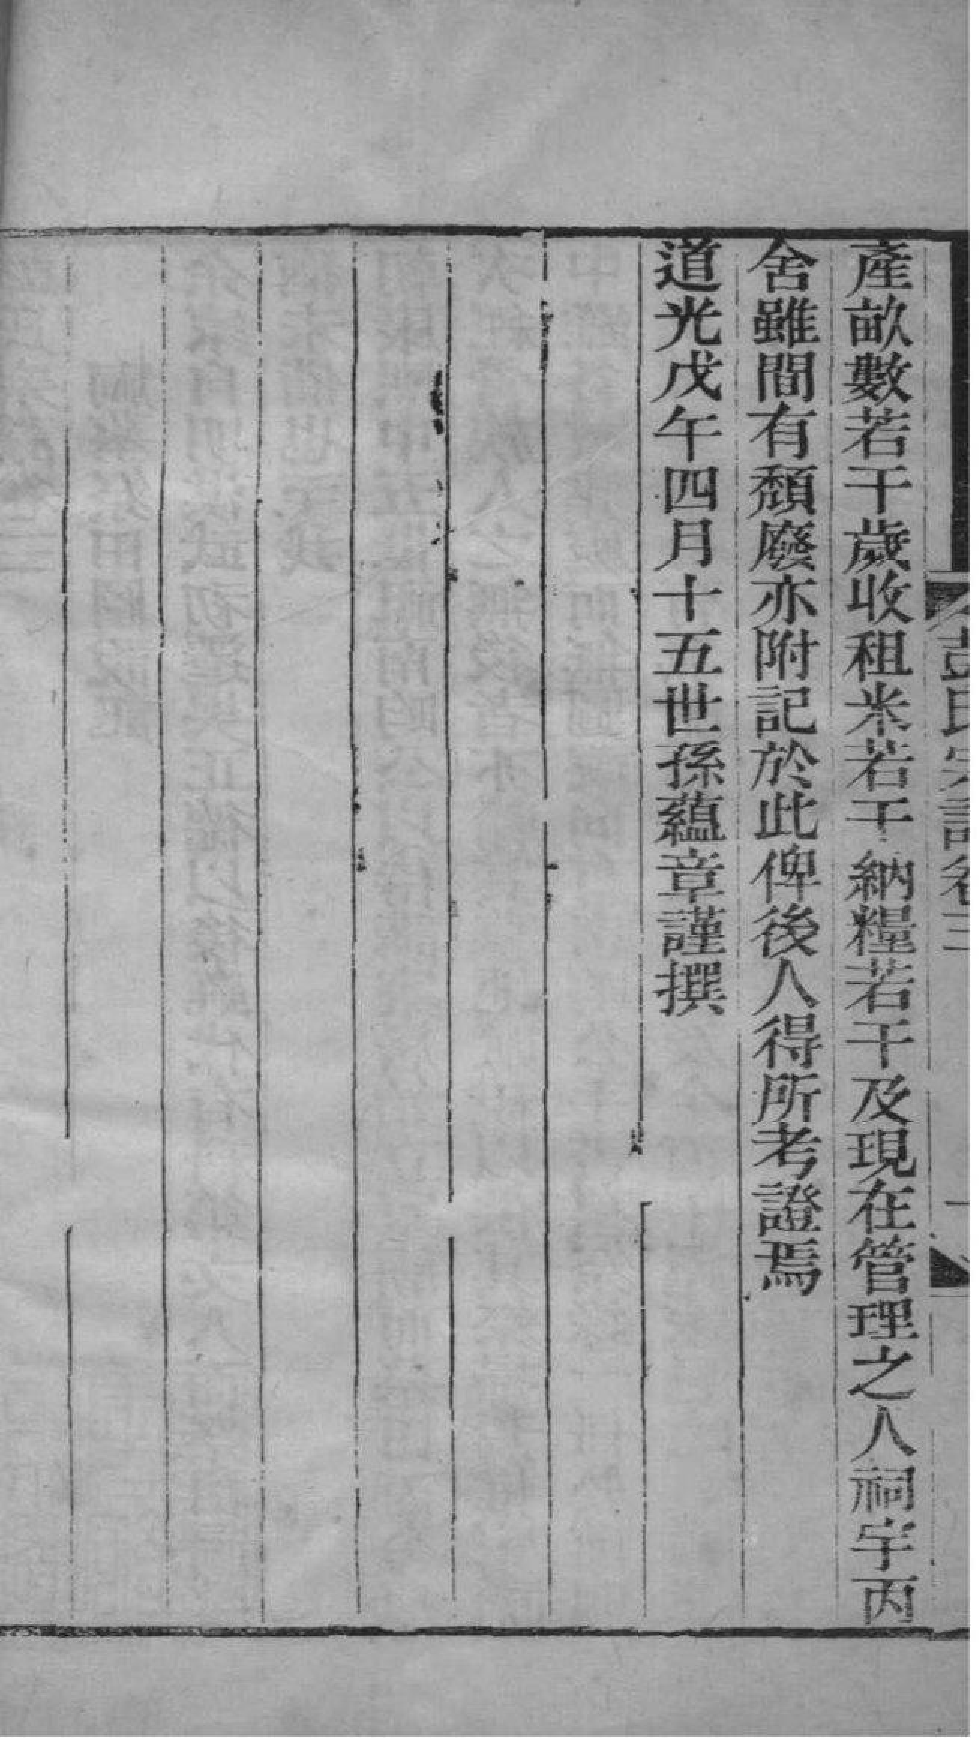 彭氏宗譜卷三
產畝數若干歲收租米若干納糧若干及現在管理之人祠宇丙
舍雖間有頹廢亦附記於此俾後人得所考證焉
道光戊午四月十五世孫蘊章謹撰